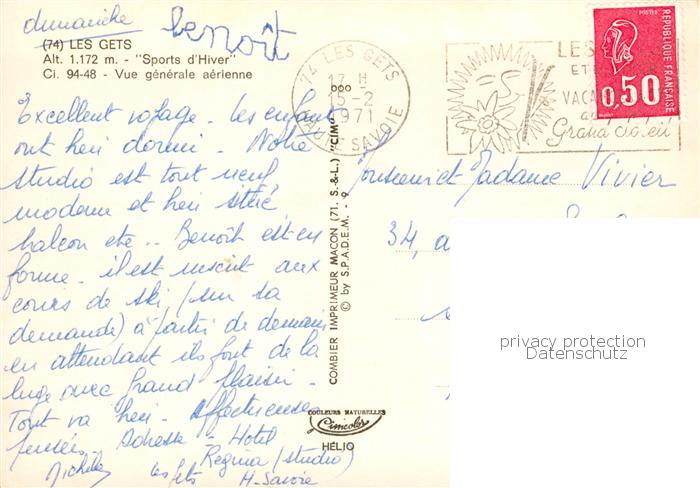 dimanche
benoît
(74) LES GETS
Alt. 1.172 m. - "Sports d'Hiver"
Ci. 94-48 - Vue générale aérienne
Excellent voyage - les enfants
ont bien dormi - Notre
studio est tout neuf
moderne et bien situé
balcon etc .. Benoît est en
forme - il est inscrit aux
cours de ski (sur sa
demande) à partir de demain
en attendant ils font de la
luge avec grand plaisir -
Tout va bien - Affectueuses
pensées - Adresse - Hotel
Regina (studio)
Les Gets H-Savoie
Michèle
COMBIER IMPRIMEUR MACON (71. S.-&-L.) "CIM"
© by S.P.A.D.E.M. - 9
COULEURS NATURELLES
Cimcolor
HÉLIO
74 LES GETS
17 H
15-2
1971
HAUTE SAVOIE
LES
ETE
VACA
Grand
POSTES
RÉPUBLIQUE FRANÇAISE
0,50
Monsieur et Madame Vivier
34, a
privacy protection
Datenschutz